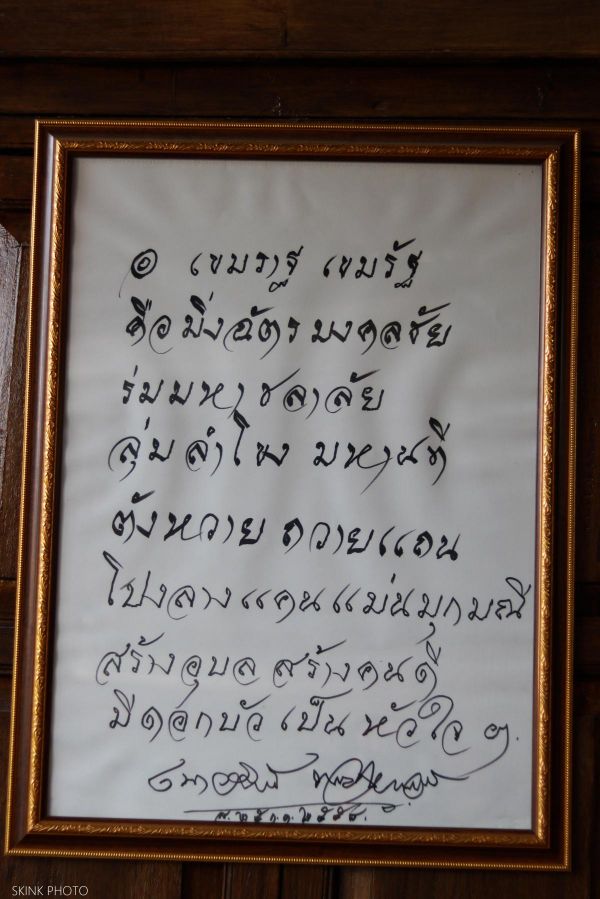 ๏ เขมราฐ เขมรัฐ
คือมิ่งฉัตรมงคลชัย
ร่มมหาชลาลัย
ลุ่มลำโขง มหานที
ตังหวาย ถวายแถน
โปงลางแคนแม่นมุกมณี
สร้างอุบล สร้างคนดี
มีดอกบัว เป็น หัวใจ ๚
เนาวรัตน์ พงษ์ไพบูลย์
SKINK PHOTO